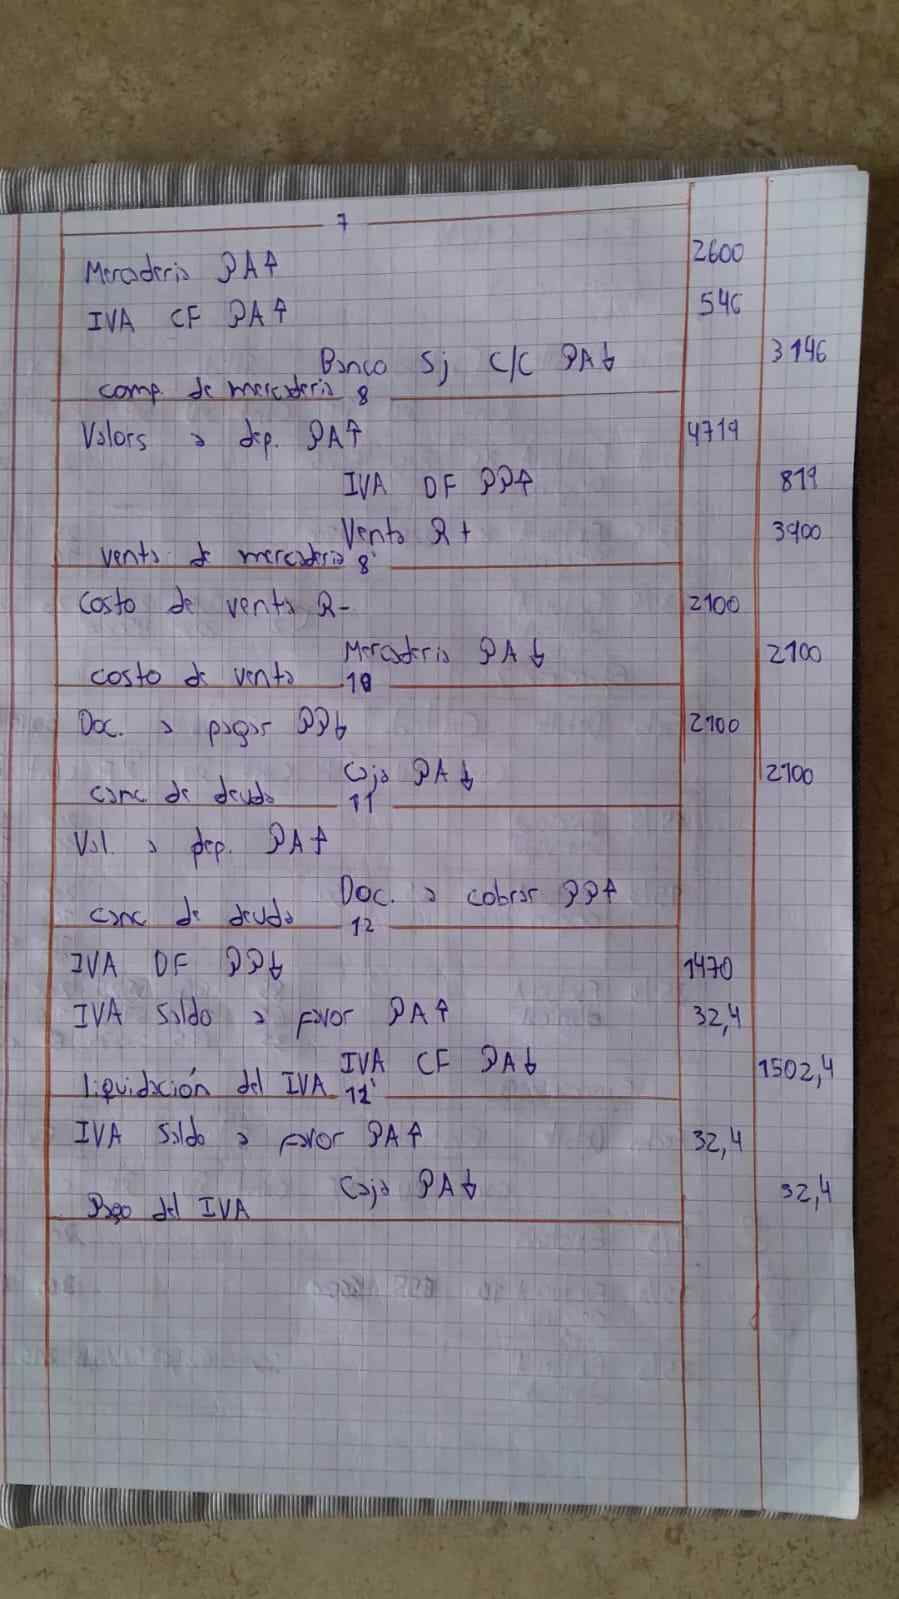 7
Mercaderia PA↑ 2600
IVA CF PA↑ 546
Banco S/ C/C PA↓ 3146
comp. de mercaderia 8
Valors a dep. PA↑ 4719
IVA DF PP↑ 819
Venta R+ 3900
venta de mercaderia 8'
Costo de venta R- 2100
Mercaderia PA↓ 2100
costo de venta 10
Doc. a pagar PP↓ 2100
Caja PA↓ 2100
canc de deuda 11
Val. a dep. PA↑
Doc. a cobrar PP↑
canc de deuda 12
IVA DF PP↓ 1470
IVA Saldo a favor PA↑ 32,4
IVA CF PA↓ 1502,4
liquidación del IVA 12'
IVA Saldo a favor PA↑ 32,4
Caja PA↓ 32,4
Pago del IVA